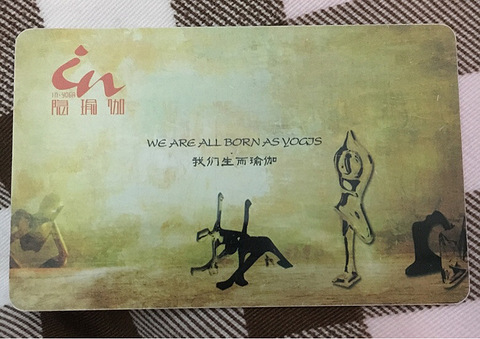 in
IN·YOGA
隱瑜伽
WE ARE ALL BORN AS YOGIS
我们生而瑜伽